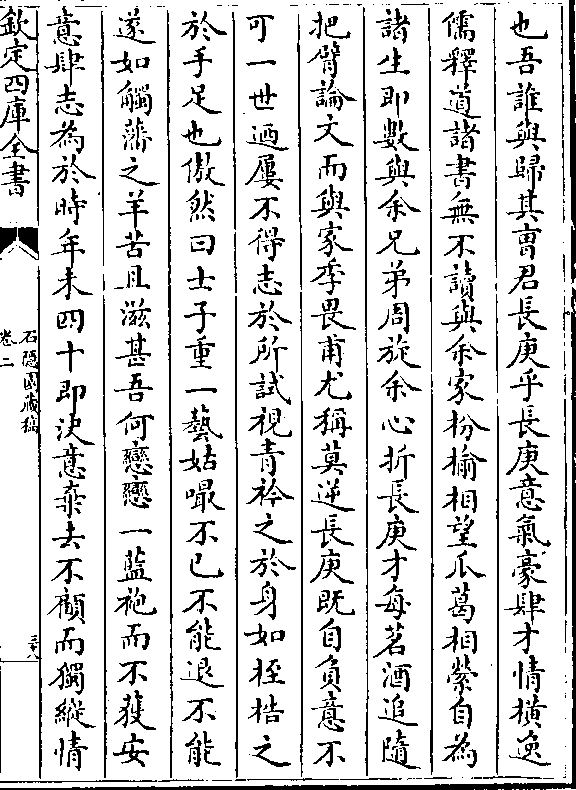 也吾誰與歸其曺君長庚乎長庚意氣豪肆才情橫逸
儒釋道諸書無不讀與余家枌榆相望瓜葛相縈自為
諸生即數與余兄弟周旋余心折長庚才每茗酒追隨
把臂論文而與家季畏甫尤稱莫逆長庚既自負意不
可一世廼屢不得志於所試視青衿之於身如桎梏之
於手足也傲然曰士子重一藝姑嘬不已不能退不能
遂如觸藩之羊苦且滋甚吾何戀戀一藍袍而不獲安
意肆志為於時年未四十即決意棄去不顧而獨縱情
欽定四庫全書
石隱園藏稿
卷二
三十八